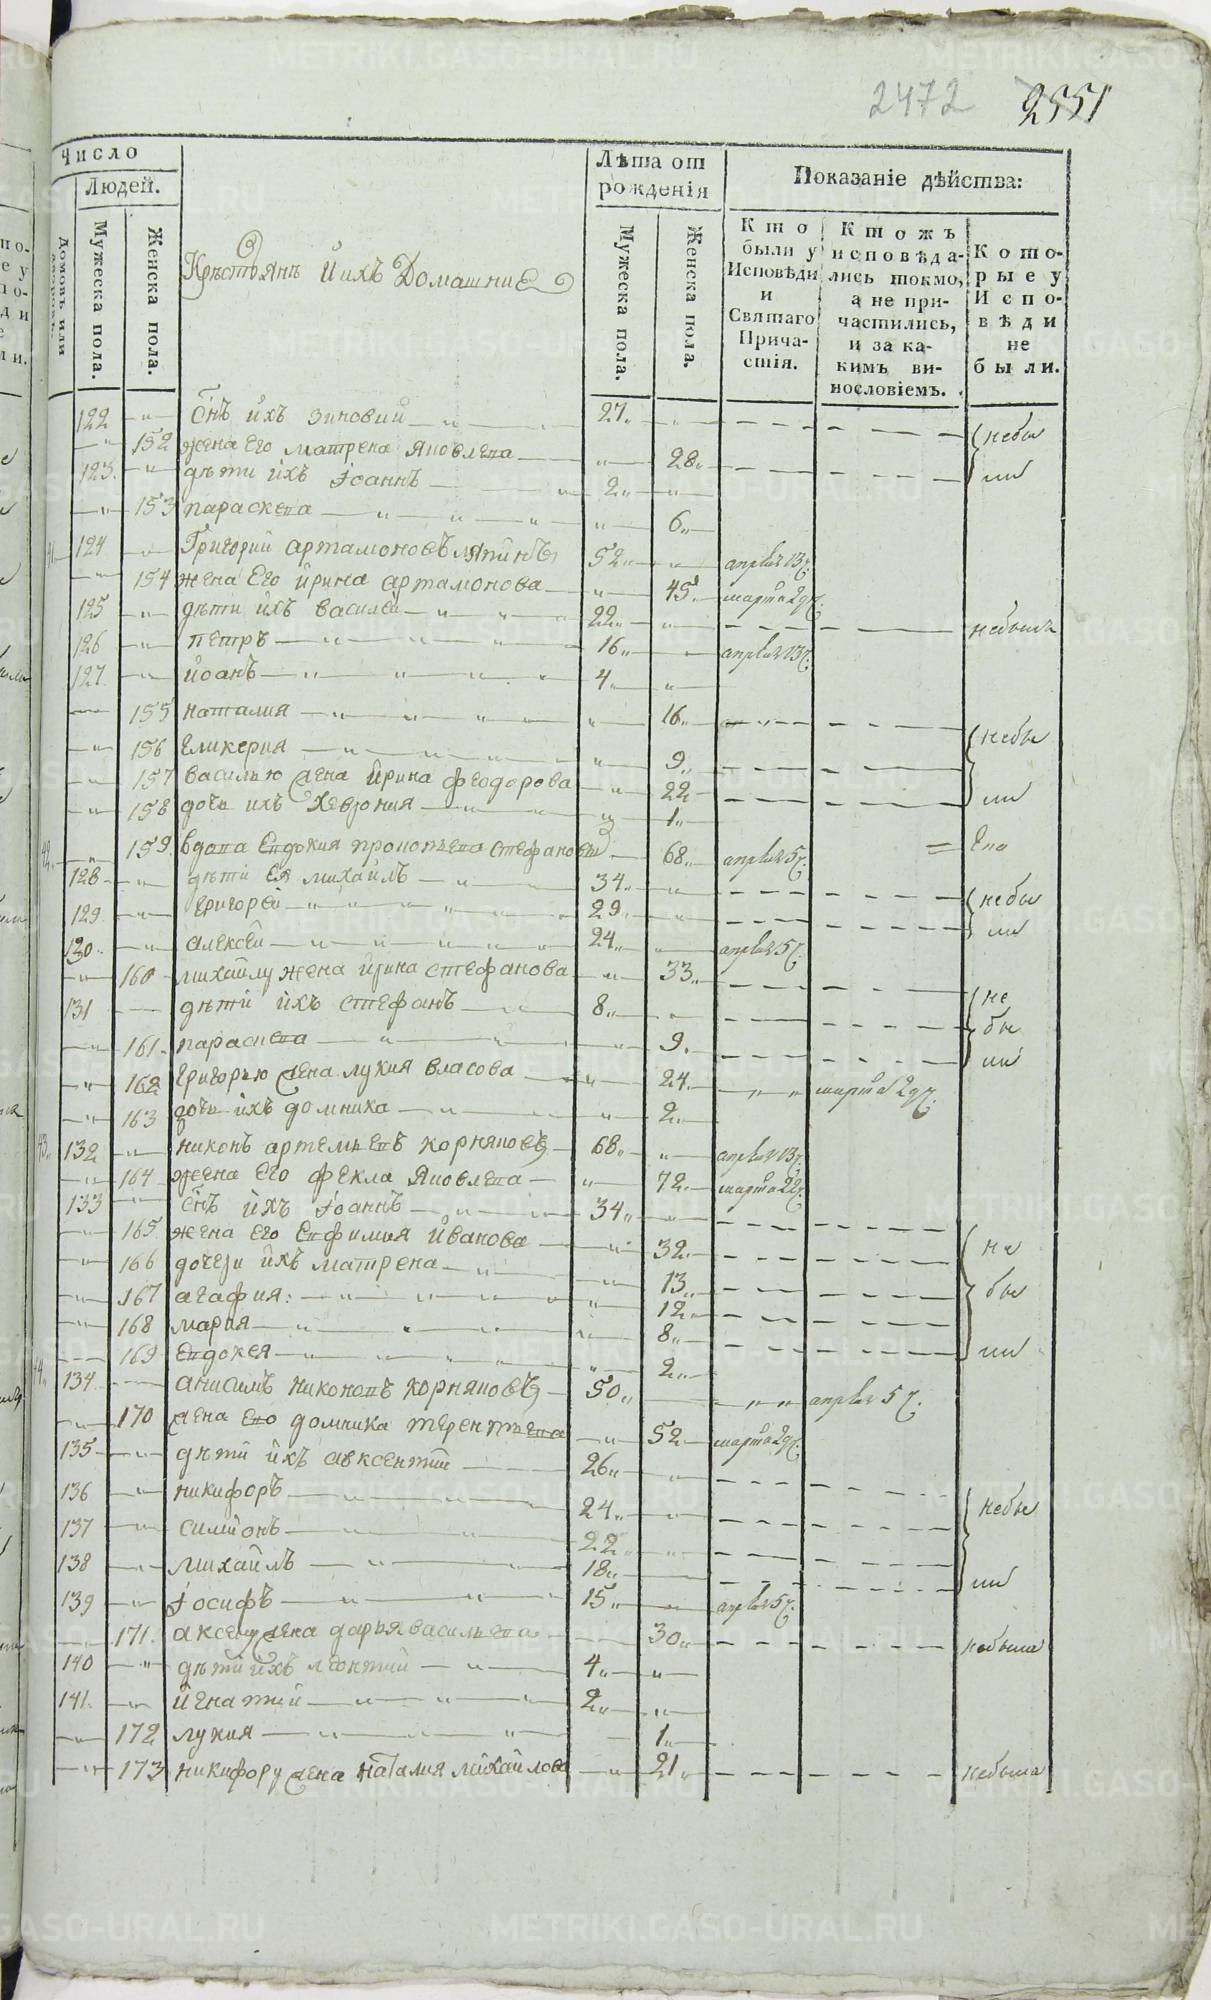 2472 2551
Число
Людей.
Домовъ или
Мужеска пола.
Женска пола.
Крѣстьянъ и ихъ Домашние
Лѣта от рожденія
Мужеска пола.
Женска пола.
Показаніе дѣйства:
Кто были у Исповѣди и Святаго Прича-стія.
Ктожъ исповѣда-лись токмо, а не при-частились, и за ка-кимъ ви-нословіемъ.
Кото-рые у Испо-вѣди не были.
122 снъ ихъ зиновий 27 небы
152 жена его матрена яковлева 28 ли
123 дѣти ихъ Iоаннъ 2
153 параскева 6
41 124 Григорий артамоновъ 52 апрѣля 13
154 жена его ирина артамонова 45 марта 29
125 дѣти ихъ василей 22 небылъ
126 петръ 16 апрѣля 13
127 иоанъ 4
155 наталия 16 небы
156 гликерия 9
157 василью жена ирина феодорова 22 ли
158 дочь ихъ хеврония 1
42 159 вдова евдокия прокопьева стефановы 68 апрѣля 5
128 дѣти ея михаилъ 34 небы
129 григорей 29 ли
130 алексей 24 апрѣля 5
160 михаилу жена ирина стефанова 33 не
131 дѣти ихъ стефанъ 8 бы
161 параскева 9 ли
162 григорью жена лукия власова 24 марта 29
163 дочь ихъ домника 2
43 132 никонъ артемьевъ корняковъ 68 апрѣля 13
164 жена его фекла яковлева 72 марта 22
133 снъ ихъ Iоаннъ 34
165 жена его евфимия иванова 32 не
166 дочери ихъ матрена 13
167 агафия: 12 бы
168 мария 8
169 евдокея 2 ли
44 134 анисимъ никоновъ корняковъ 50 апрѣля 5
170 жена его домника терентьева 52 марта 29
135 дѣти ихъ авксентий 26
136 никифоръ 24 небы
137 симионъ 22
138 михаилъ 18 ли
139 Iосифъ 15 апрѣля 5
171 жена дарья васильева 30 небыла
140 дѣти ихъ леонтий 4
141 игнатий 2
172 лукия 1
173 никифору жена наталия михайлова 21 небыла
METRIKI.GASO-URAL.RU